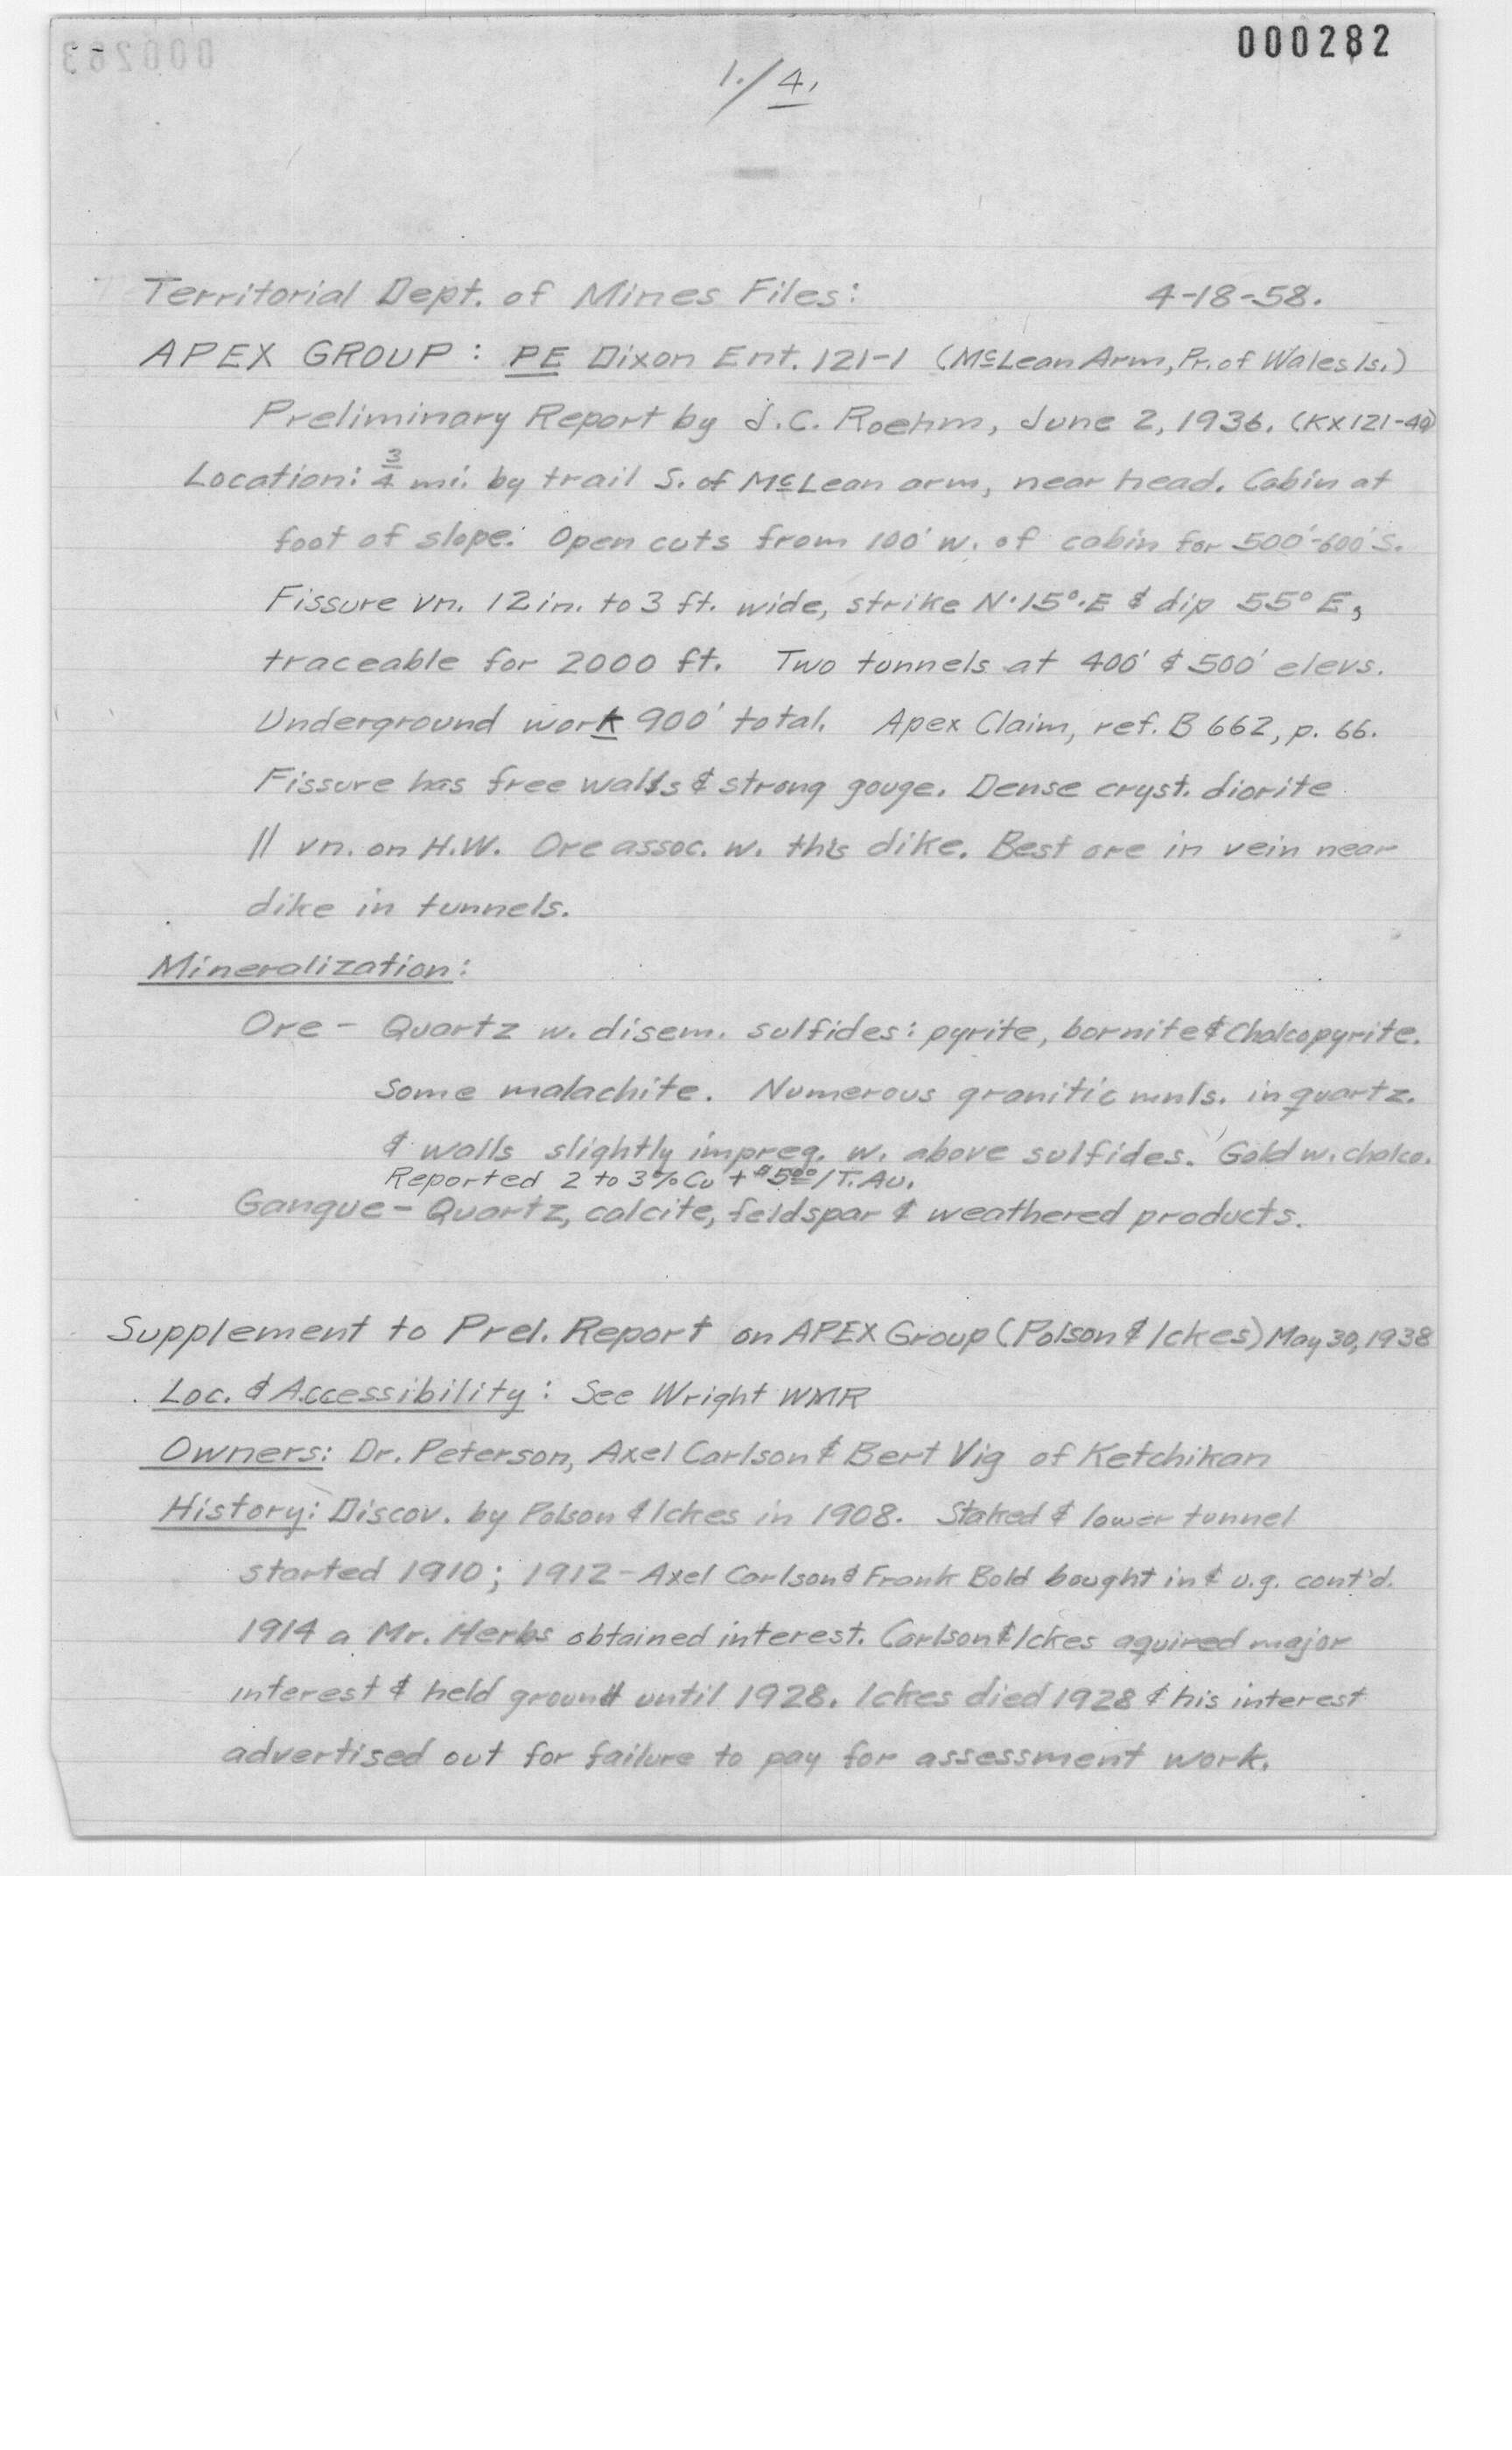 000282
1./4.
Territorial Dept. of Mines Files: 4-18-58.
APEX GROUP: PE Dixon Ent. 121-1 (McLean Arm, Pr. of Wales Is.)
Preliminary Report by J.C. Roehm, June 2, 1936. (KX121-40)
Location: 3/4 mi. by trail S. of McLean arm, near head. Cabin at
foot of slope. Open cuts from 100' w. of cabin for 500'-600' S.
Fissure vn. 12 in. to 3 ft. wide, strike N.15°.E & dip 55° E,
traceable for 2000 ft. Two tunnels at 400' & 500' elevs.
Underground work 900' total. Apex Claim, ref. B 662, p. 66.
Fissure has free walls & strong gouge. Dense cryst. diorite
|| vn. on H.W. Ore assoc. w. this dike. Best ore in vein near
dike in tunnels.
Mineralization:
Ore - Quartz w. disem. sulfides: pyrite, bornite & Chalcopyrite.
Some malachite. Numerous granitic mnls. in quartz.
& walls slightly impreg. w. above sulfides. Gold w. chalco.
Reported 2 to 3% Cu + $5.00/T. Au.
Gangue - Quartz, calcite, feldspar & weathered products.
Supplement to Prel. Report on APEX Group (Polson & Ickes) May 30, 1938
Loc. & Accessibility: See Wright WMR
Owners: Dr. Peterson, Axel Carlson & Bert Vig of Ketchikan
History: Discov. by Polson & Ickes in 1908. Staked & lower tunnel
started 1910; 1912 - Axel Carlson & Frank Bold bought in & u.g. cont'd.
1914 a Mr. Herbs obtained interest. Carlson & Ickes aquired major
interest & held ground until 1928. Ickes died 1928 & his interest
advertised out for failure to pay for assessment work.